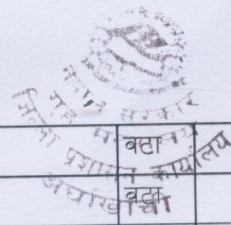 नेपाल सरकार
गृह मन्त्रालय
जिल्ला प्रशासन कार्यालय
अर्घाखाँची
वटा
वटा